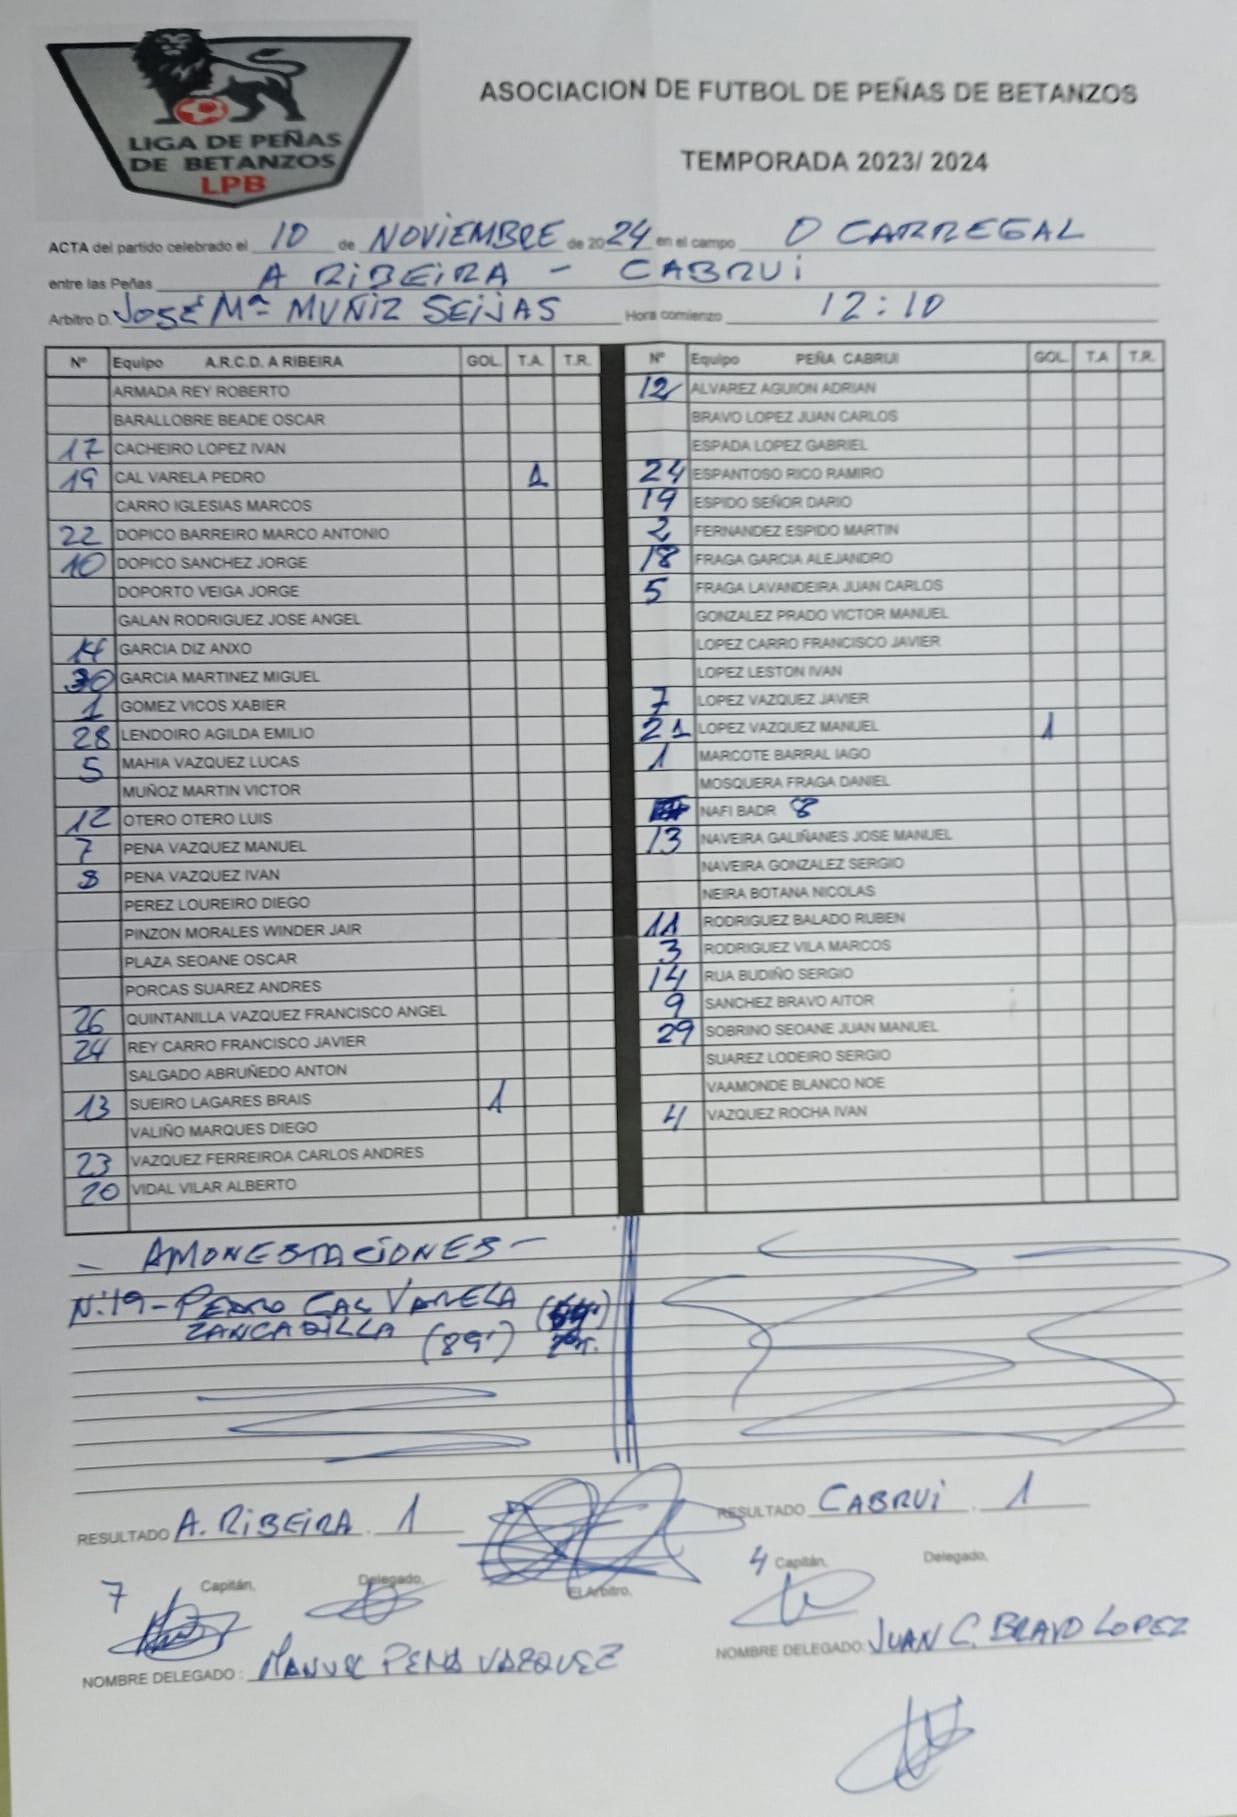 LIGA DE PEÑAS
DE BETANZOS
LPB
ASOCIACION DE FUTBOL DE PEÑAS DE BETANZOS
TEMPORADA 2023/ 2024
ACTA del partido celebrado el 10 de NOVIEMBRE de 2024 en el campo O CARREGAL
entre las Peñas A RIBEIRA - CABRUI
Arbitro D. JOSÉ Mª MUÑIZ SEIJAS Hora comienzo 12:10
Nº Equipo A.R.C.D. A RIBEIRA GOL. T.A. T.R.
ARMADA REY ROBERTO
BARALLOBRE BEADE OSCAR
17 CACHEIRO LOPEZ IVAN
19 CAL VARELA PEDRO 1
CARRO IGLESIAS MARCOS
22 DOPICO BARREIRO MARCO ANTONIO
10 DOPICO SANCHEZ JORGE
DOPORTO VEIGA JORGE
GALAN RODRIGUEZ JOSE ANGEL
14 GARCIA DIZ ANXO
30 GARCIA MARTINEZ MIGUEL
1 GOMEZ VICOS XABIER
28 LENDOIRO AGILDA EMILIO
5 MAHIA VAZQUEZ LUCAS
MUÑOZ MARTIN VICTOR
12 OTERO OTERO LUIS
7 PENA VAZQUEZ MANUEL
8 PENA VAZQUEZ IVAN
PEREZ LOUREIRO DIEGO
PINZON MORALES WINDER JAIR
PLAZA SEOANE OSCAR
PORCAS SUAREZ ANDRES
26 QUINTANILLA VAZQUEZ FRANCISCO ANGEL
24 REY CARRO FRANCISCO JAVIER
SALGADO ABRUÑEDO ANTON
13 SUEIRO LAGARES BRAIS 1
VALIÑO MARQUES DIEGO
23 VAZQUEZ FERREIROA CARLOS ANDRES
20 VIDAL VILAR ALBERTO
Nº Equipo PEÑA CABRUI GOL. T.A T.R.
12 ALVAREZ AGUION ADRIAN
BRAVO LOPEZ JUAN CARLOS
ESPADA LOPEZ GABRIEL
24 ESPANTOSO RICO RAMIRO
19 ESPIDO SEÑOR DARIO
2 FERNANDEZ ESPIDO MARTIN
18 FRAGA GARCIA ALEJANDRO
5 FRAGA LAVANDEIRA JUAN CARLOS
GONZALEZ PRADO VICTOR MANUEL
LOPEZ CARRO FRANCISCO JAVIER
LOPEZ LESTON IVAN
7 LOPEZ VAZQUEZ JAVIER
21 LOPEZ VAZQUEZ MANUEL 1
1 MARCOTE BARRAL IAGO
MOSQUERA FRAGA DANIEL
NAFI BADR 8
13 NAVEIRA GALIÑANES JOSE MANUEL
NAVEIRA GONZALEZ SERGIO
NEIRA BOTANA NICOLAS
11 RODRIGUEZ BALADO RUBEN
3 RODRIGUEZ VILA MARCOS
14 RUA BUDIÑO SERGIO
9 SANCHEZ BRAVO AITOR
29 SOBRINO SEOANE JUAN MANUEL
SUAREZ LODEIRO SERGIO
VAAMONDE BLANCO NOE
4 VAZQUEZ ROCHA IVAN
- AMONESTACIONES -
N.19 - PEDRO CAL VARELA
ZANCADILLA (89')
RESULTADO A. RIBEIRA. 1 RESULTADO CABRUI. 1
7 Capitán, Delegado, El Arbitro, 4 Capitán, Delegado,
NOMBRE DELEGADO : MANUEL PENA VAZQUEZ NOMBRE DELEGADO: JUAN C. BRAVO LOPEZ